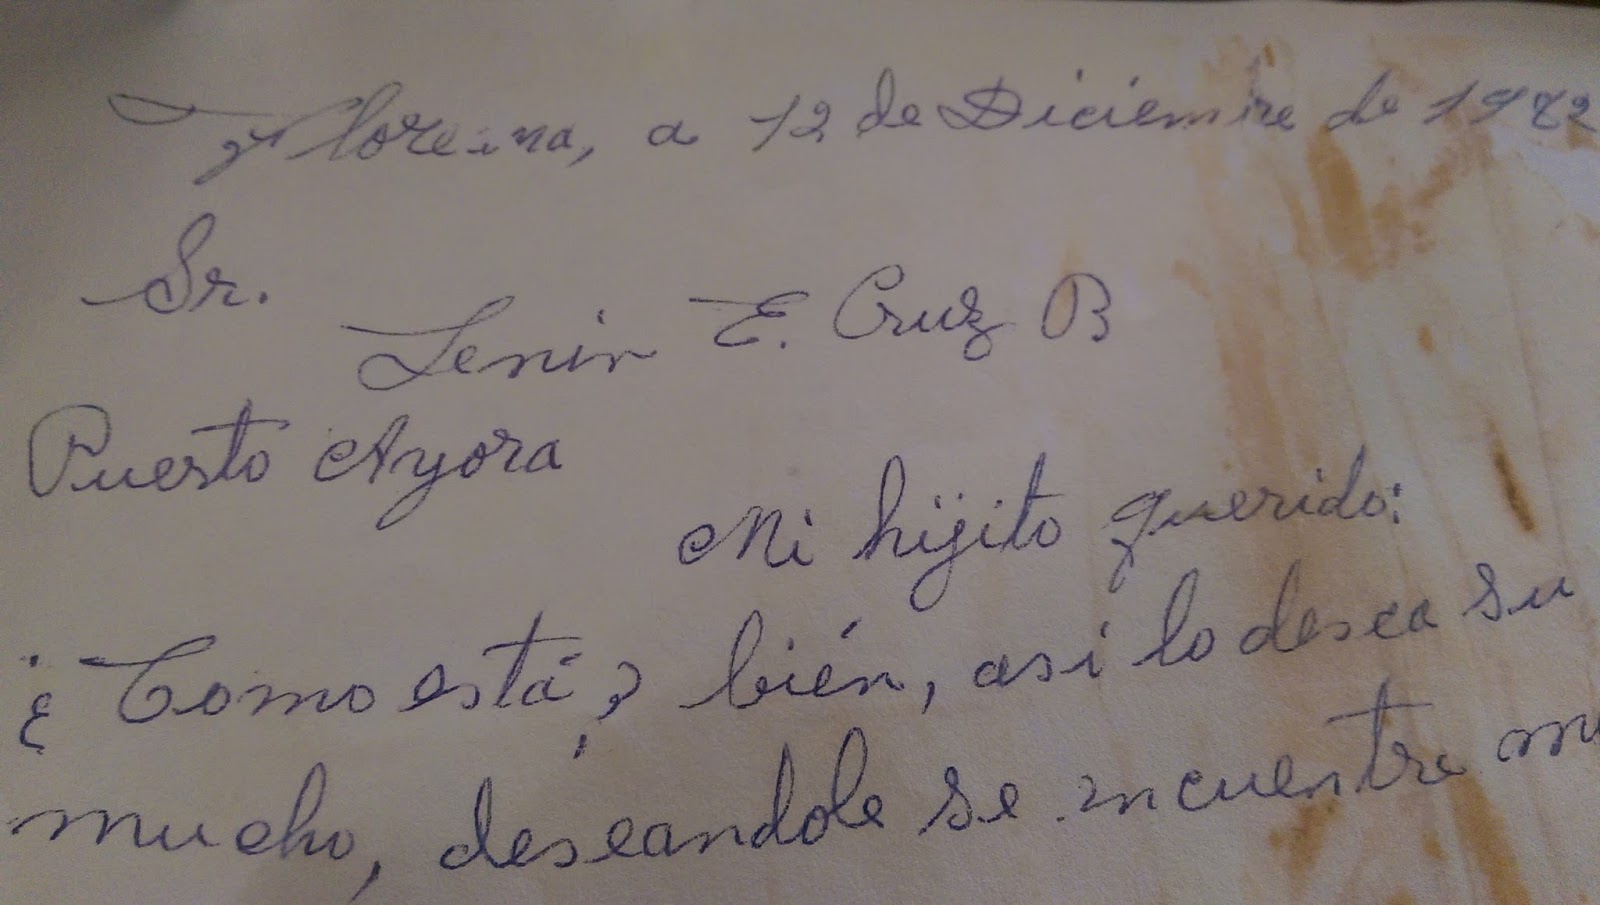 Floreana, a 12 de Diciembre de 1972
Sr.
Lenin E. Cruz B
Puerto Ayora
Mi hijito querido:
¿Como está? bién, asi lo desea su
mucho, deseandole se encuentre